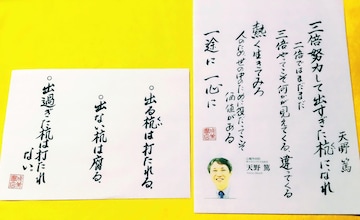 三倍努力して出すぎた杭になれ
二倍ではまだまだ
三倍やってこそ何かが見えてくる、違ってくる
人のため世の中のために役に立ってこそ
価値がある
熱く生きてみろ
一途に 一心に
天野 篤
天野 篤
○出る杭は打たれる
くい
○出ない杭は腐る
○出過ぎた杭は打たれ
ない